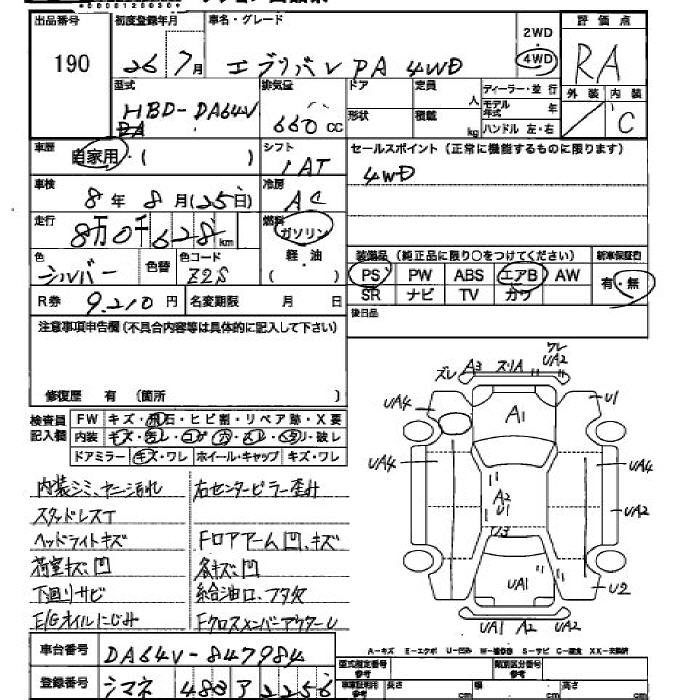 出品番号 初度登録年月 車名・グレード 2WD 評価点
190 26 7月 エブリバン PA 4WD ・4WD RA
型式 排気量 ドア 定員 人 ディーラー・並行 外装 内装
HBD-DA64V 660 CC 形状 積載 kg モデル年式 年 C
ハンドル 左・右
車歴 自家用・( ) シフト 1AT セールスポイント (正常に機能するものに限ります)
車検 8年 8月(25日) 冷房 AC 4WD
走行 8万0千628km 燃料 ガソリン
色 シルバー 色替 色コード Z2S 軽・油 ( )
装備品 (純正品に限り○をつけてください) 新車保証書
PS PW ABS エアB AW 有・無
SR ナビ TV カワ
R券 9,210円 名変期限 月 日 後日品
注意事項申告欄 (不具合内容等は具体的に記入して下さい)
修復歴 有 (箇所 )
検査員記入欄 FW キズ・飛石・ヒビ割・リペア跡・X要
内装 キズ・汚レ・コゲ・穴・スレ・切リ・破レ
ドアミラー キズ・ワレ ホイール・キャップ キズ・ワレ
内装シミ、ヤニ汚れ 右センターピラー歪み
スタッドレスT
ヘッドライトキズ Fロアアーム凹、キズ
荷室キズ、凹 各キズ、凹
下廻りサビ 給油口、フタ
E/Gオイルにじみ Fクロスメンバーアウター
ズレ A3 スリA ワレ UA2
UA4 A1 U1
UA4 A2 U1 UA4
UA2
U3
UA1 U2
UA1 A2 UA2
A-キズ E-エクボ U-凹み W-補修跡 S-サビ C-腐食 XX-交換済
車台番号 DA64V-847984
型式指定番号 参考 類別区分番号 参考
登録番号 シマネ 483 ア 2256
車庫証明用 参考 長さ cm 幅 cm 高さ cm